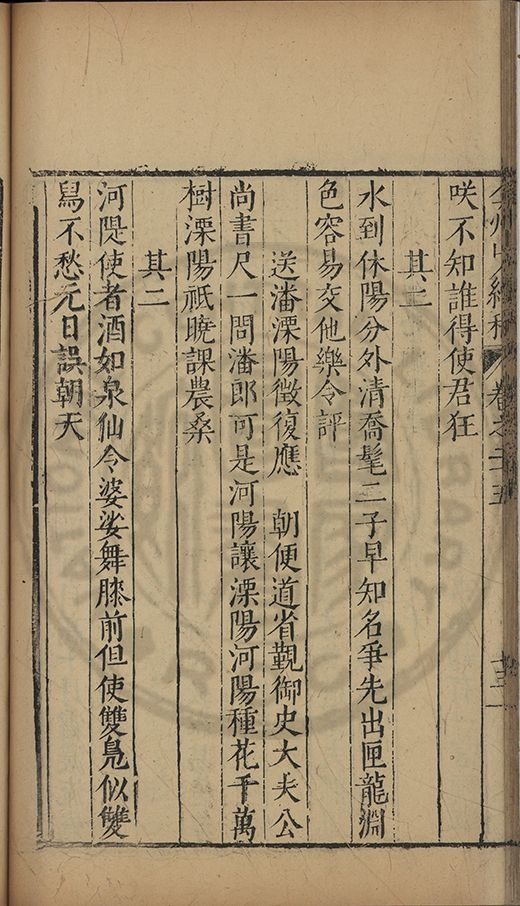 弇州山人續稿 卷之二十五
咲不知誰得使君狂
其二
水到休陽分外清喬髦二子早知名爭先出匣龍淵
色容易交他樂令評
送潘溧陽徵復應 朝便道省覲御史大夫公
尚書尺一問潘郎可是河陽讓溧陽河陽種花千萬
樹溧陽祇晚課農桑
其二
河隄使者酒如泉仙令婆娑舞膝前但使雙鳧似雙
舄不愁元日誤朝天